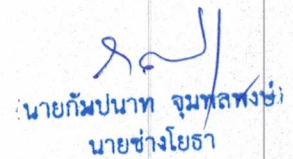 (นายกัมปนาท จุมพลพงษ์)
นายช่างโยธา